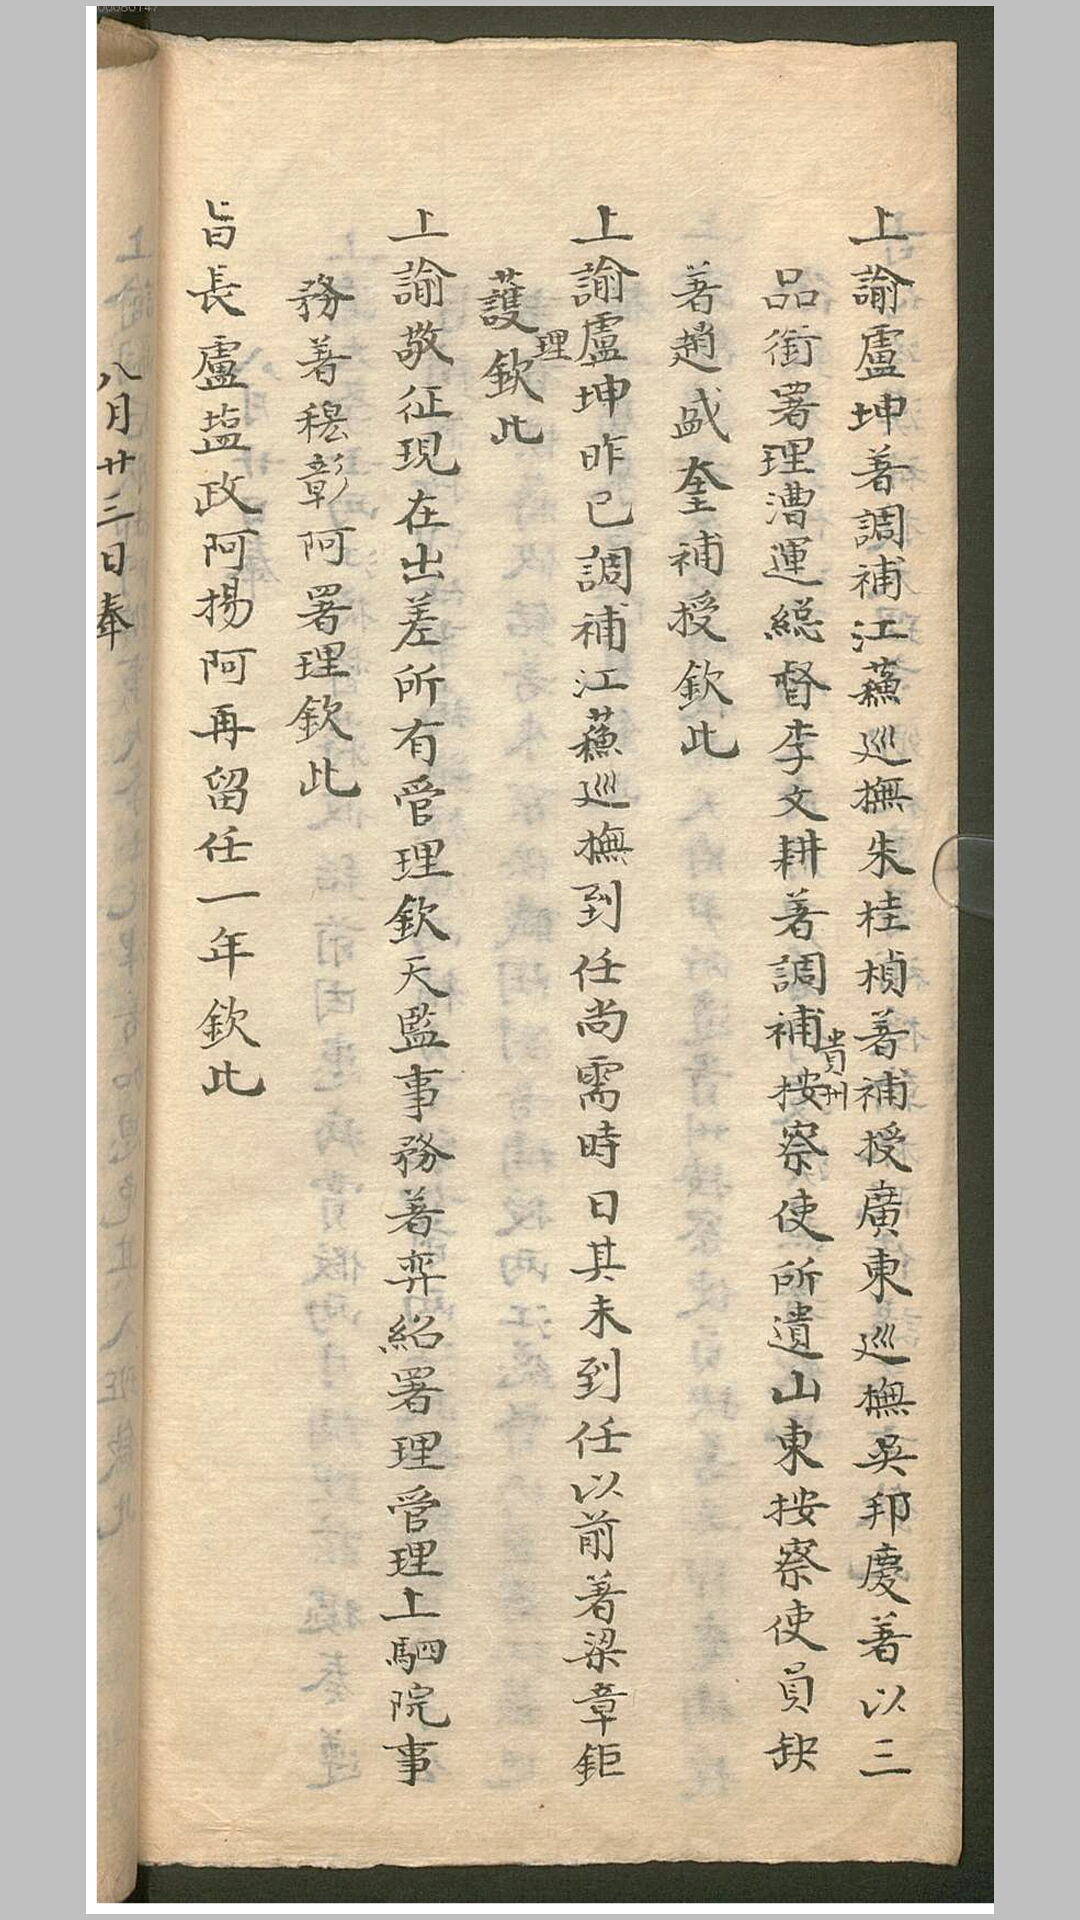 上諭盧坤著調補江蘓巡撫朱桂楨著補授廣東巡撫吳邦慶著以三
品銜署理漕運総督李文耕著調補貴州按察使所遺山東按察使員缺
著趙盛奎補授欽此
上諭盧坤昨已調補江蘓巡撫到任尚需時日其未到任以前著梁章鉅
護理欽此
上諭敬征現在出差所有管理欽天監事務著奕紹署理管理上駟院事
務著穆彰阿署理欽此
旨長盧塩政阿揚阿再留任一年欽此
八月廿三日奉